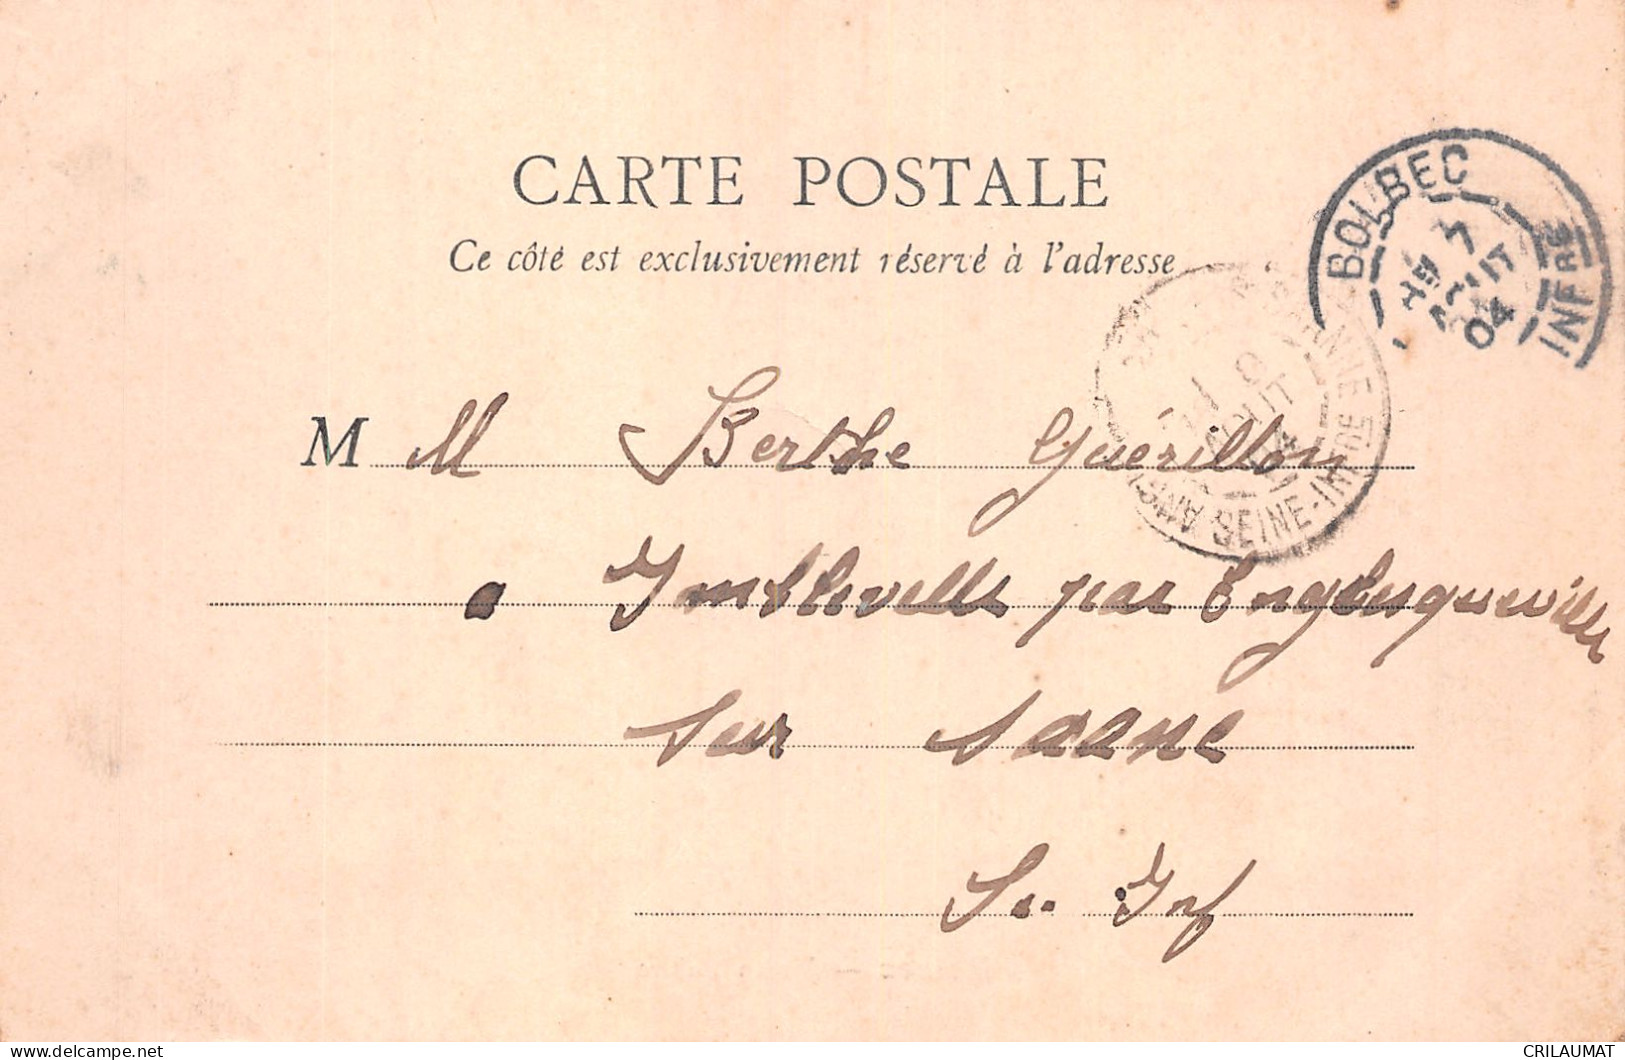 CARTE POSTALE
Ce côté est exclusivement réservé à l'adresse
BOLBEC
INFRE
AOUT
04
AOUT
SEINE-INFRE
M M Berthe Guérillon
a Imblleville par Englesqueville
sur Saene
Se. Inf
CRILAUMAT